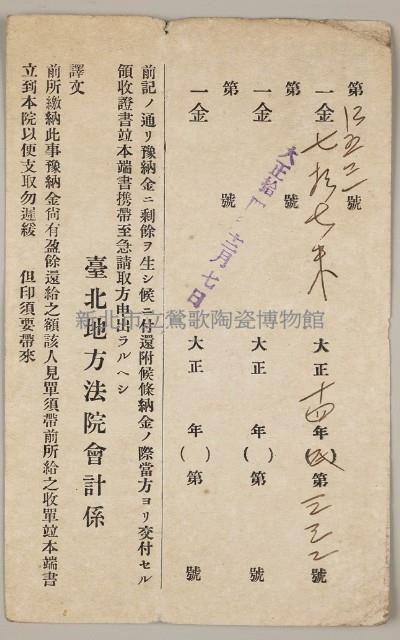 第 五三 號
一金 七拾七 大正十四年( )第三三二號
第 號
一金 大正 年( )第 號
第 號
一金 大正 年( )第 號
大正 十二月七日
前記ノ通リ豫納金ニ剩餘ヲ生シ候ニ付還附候條納金ノ際當方ヨリ交付セル
領收證書竝本端書携帶至急請取方申出ラルヘシ
臺北地方法院會計係
譯文
前所繳納此事豫納金尚有盈餘還給之額該人見單須帶前所給之收單竝本端書
立到本院以便支取勿遲緩 但印須要帶來
新北市立鶯歌陶瓷博物館